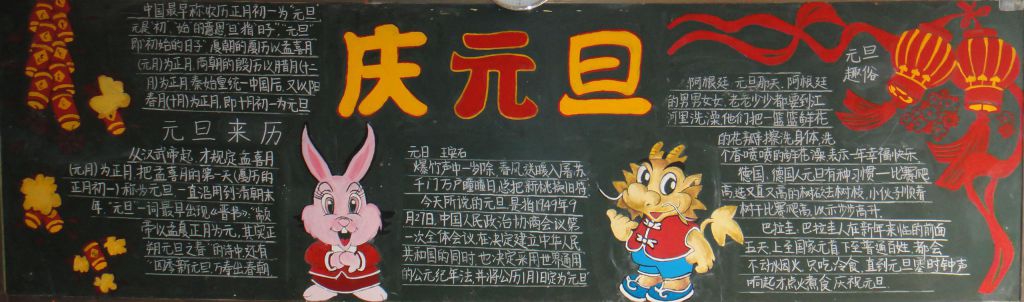 中国最早称农历正月初一为"元旦
元是"初""始"的意思"旦"指"日子""元旦
即"初始的日子"夏朝的夏历以孟喜月
(元月)为正月,商朝的殷历以腊月(十二
月)为正月,秦始皇统一中国后,又以阳
春月(十月)为正月,即十月初一为元旦
元旦来历
从汉武帝起,才规定孟喜月
(元月)为正月,把孟喜月的第一天(夏历的
正月初一)称为元旦,一直沿用到清朝末
年,"元旦"一词最早出现《晋书》:"
帝以孟喜正月为元,其实正
朔元旦之春"的诗中
四季新元旦万寿初春朝
庆元旦
元日 王安石
爆竹声中一岁除 春风送暖入屠苏
千门万户曈曈日 总把新桃换旧符
今天所说的元旦,是指1949年9
月27日,中国人民政治协商会议第
一次全体会议,在决定建立中华人民
共和国的同时,也决定采用世界通用
的公元纪年法,并将公历1月1日定为元旦
元旦
趣俗
阿根廷 元旦那天,阿根廷
的男男女女,老老少少都要到江
河里洗澡,他们把一篮篮鲜花
的花瓣擦洗身体,洗
个香喷喷的鲜花澡,表示一年幸福快乐
德国 德国人元旦有种习惯—比赛爬
高,选又直又高的树砍去树枝,小伙分别沿着
树干比赛爬高,以示步步高升
巴拉圭 巴拉圭人在新年来临的前面
五天,上至国家元首,下至普通百姓,都会
不动烟火,只吃冷食,直到元旦零时钟声
响起才点火煮食,庆祝元旦